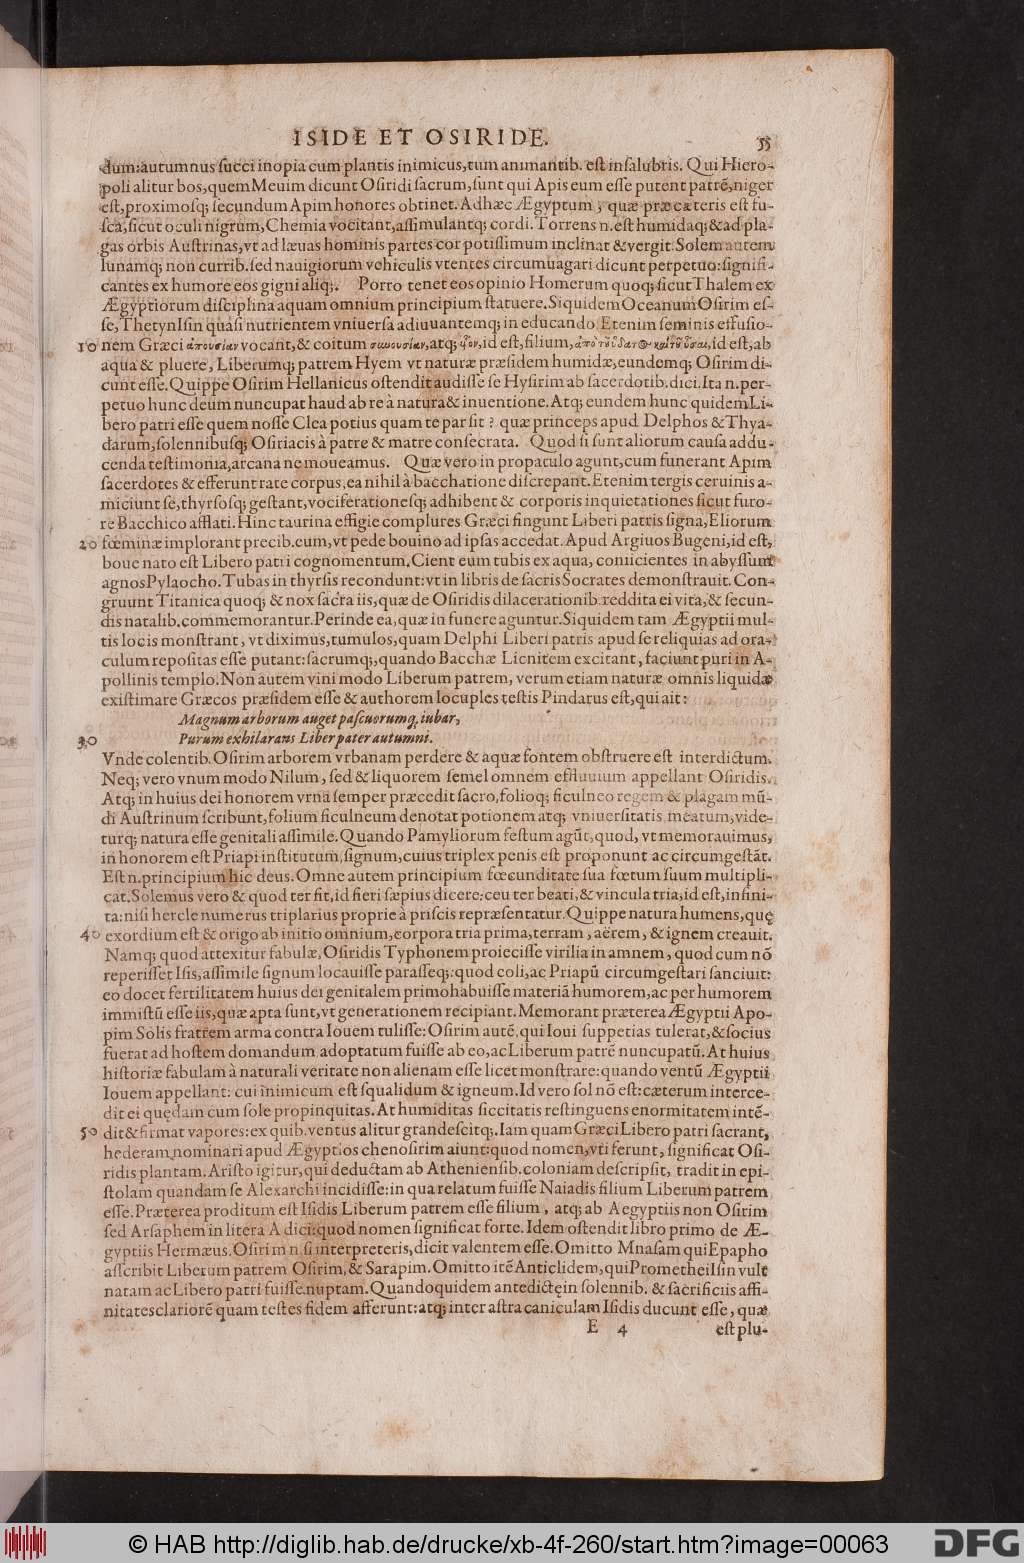 ISIDE ET OSIRIDE.
55
dum: autumnus succi inopia cum plantis inimicus, tum animantib. est insalubris. Qui Hiero-
poli alitur bos, quem Meuim dicunt Osiridi sacrum, sunt qui Apis eum esse putent patrẽ, niger
est, proximosq; secundum Apim honores obtinet. Ad hæc Ægyptum, quæ præ cæteris est fu-
sca, sicut oculi nigrum, Chemia vocitant, assimulantq; cordi. Torrens n. est humidaq; & ad pla-
gas orbis Austrinas, vt ad læuas hominis partes cor potissimum inclinat & vergit Solem autem
lunamq; non currib. sed nauigiorum vehiculis vtentes circumuagari dicunt perpetuo: signifi-
cantes ex humore eos gigni aliq;. Porro tenet eos opinio Homerum quoq; sicut Thalem ex
Ægyptiorum disciplina aquam omnium principium statuere. Siquidem Oceanum Osirim es-
se, Thetyn Isin quasi nutrientem vniuersa adiuuantemq; in educando. Etenim seminis effusio-
10 nem Græci ἀπουσίαν vocant, & coitum συνουσίαν, atq; ὑὸν, id est, filium, ἀπὸ τοῦ ὕδατος καὶ τοῦ ὗσαι, id est, ab
aqua & pluere, Liberumq; patrem Hyem vt naturæ præsidem humidæ, eundemq; Osirim di-
cunt esse. Quippe Osirim Hellanicus ostendit audisse se Hysirim ab sacerdotib. dici. Ita n. per-
petuo hunc deum nuncupat haud ab re à natura & inuentione. Atq; eundem hunc quidem Li-
bero patri esse quem nosse Clea potius quam te par sit? quæ princeps apud Delphos & Thya-
darum, solennibusq; Osiriacis à patre & matre consecrata. Quod si sunt aliorum causa addu-
cenda testimonia, arcana ne moueamus. Quæ vero in propatulo agunt, cum funerant Apim
sacerdotes & efferunt rate corpus, ea nihil à bacchatione discrepant. Etenim tergis ceruinis a-
miciunt se, thyrsosq; gestant, vociferationesq; adhibent & corporis inquietationes sicut furo-
re Bacchico afflati. Hinc taurina effigie complures Græci fingunt Liberi patris signa, Eliorum
20 fœminæ implorant precib. eum, vt pede bouino ad ipsas accedat. Apud Argiuos Bugeni, id est,
boue nato est Libero patri cognomentum. Cient eum tubis ex aqua, coniicientes in abyssum
agnos Pylaocho. Tubas in thyrsis recondunt: vt in libris de sacris Socrates demonstrauit. Con-
gruunt Titanica quoq; & nox sacra iis, quæ de Osiridis dilacerationib. reddita ei vita, & secun-
dis natalib. commemorantur. Perinde ea, quæ in funere aguntur. Siquidem tam Ægyptii mul-
tis locis monstrant, vt diximus, tumulos, quam Delphi Liberi patris apud se reliquias ad ora-
culum repositas esse putant: sacrumq;, quando Bacchæ Licnitem excitant, faciunt puri in A-
pollinis templo. Non autem vini modo Liberum patrem, verum etiam naturæ omnis liquidæ
existimare Græcos præsidem esse & authorem locuples testis Pindarus est, qui ait:
Magnum arborum auget pascuorumq, iubar,
30 Purum exhilarans Liber pater autumni.
Vnde colentib. Osirim arborem vrbanam perdere & aquæ fontem obstruere est interdictum.
Neq; vero vnum modo Nilum, sed & liquorem semel omnem effluuium appellant Osiridis.
Atq; in huius dei honorem vrna semper præcedit sacro, folioq; ficulneo regem & plagam mũ-
di Austrinum scribunt, folium ficulneum denotat potionem atq; vniuersitatis meatum, vide-
turq; natura esse genitali assimile. Quando Pamyliorum festum agũt, quod, vt memorauimus,
in honorem est Priapi institutum, signum, cuius triplex penis est proponunt ac circumgestãt.
Est n. principium hic deus. Omne autem principium fœcunditate sua fœtum suum multipli-
cat. Solemus vero & quod ter fit, id fieri sæpius dicere: ceu ter beati, & vincula tria, id est, infini-
ta: nisi hercle numerus triplarius proprie à priscis repræsentatur. Quippe natura humens, quę
40 exordium est & origo ab initio omnium, corpora tria prima, terram, aërem, & ignem creauit.
Namq; quod attexitur fabulæ, Osiridis Typhonem proiecisse virilia in amnem, quod cum nõ
reperisset Isis, assimile signum locauisse parasseq;: quod coli, ac Priapũ circumgestari sanciuit:
eo docet fertilitatem huius dei genitalem primo habuisse materiã humorem, ac per humorem
immistũ esse iis, quæ apta sunt, vt generationem recipiant. Memorant præterea Ægyptii Apo-
pim Solis fratrem arma contra Iouem tulisse: Osirim autẽ, qui Ioui suppetias tulerat, & socius
fuerat ad hostem domandum adoptatum fuisse ab eo, ac Liberum patrẽ nuncupatũ. At huius
historiæ fabulam à naturali veritate non alienam esse licet monstrare: quando ventũ Ægyptii
Iouem appellant: cui inimicum est squalidum & igneum. Id vero sol nõ est: cæterum interce-
dit ei quędam cum sole propinquitas. At humiditas siccitatis restinguens enormitatem intẽ-
50 dit & firmat vapores: ex quib. ventus alitur grandescitq;. Iam quam Græci Libero patri sacrant,
hederam nominari apud Ægyptios chenosirim aiunt: quod nomen, vti ferunt, significat Osi-
ridis plantam. Aristo igitur, qui deductam ab Atheniensib. coloniam descripsit, tradit in epi-
stolam quandam se Alexarchi incidisse: in qua relatum fuisse Naiadis filium Liberum patrem
esse. Præterea proditum est Isidis Liberum patrem esse filium, atq; ab Aegyptiis non Osirim
sed Arsaphem in litera A dici: quod nomen significat forte. Idem ostendit libro primo de Æ-
gyptiis Hermæus. Osirim n. si interpreteris, dicit valentem esse. Omitto Mnasam qui Epapho
asscribit Liberum patrem Osirim, & Sarapim. Omitto itẽ Anticlidem, qui Promethei Isin vult
natam ac Libero patri fuisse nuptam. Quandoquidem antedictę in solennib. & sacrificiis affi-
nitates clariorẽ quam testes fidem afferunt: atq; inter astra caniculam Isidis ducunt esse, quæ
E 4 est plu-
© HAB http://diglib.hab.de/drucke/xb-4f-260/start.htm?image=00063
DFG